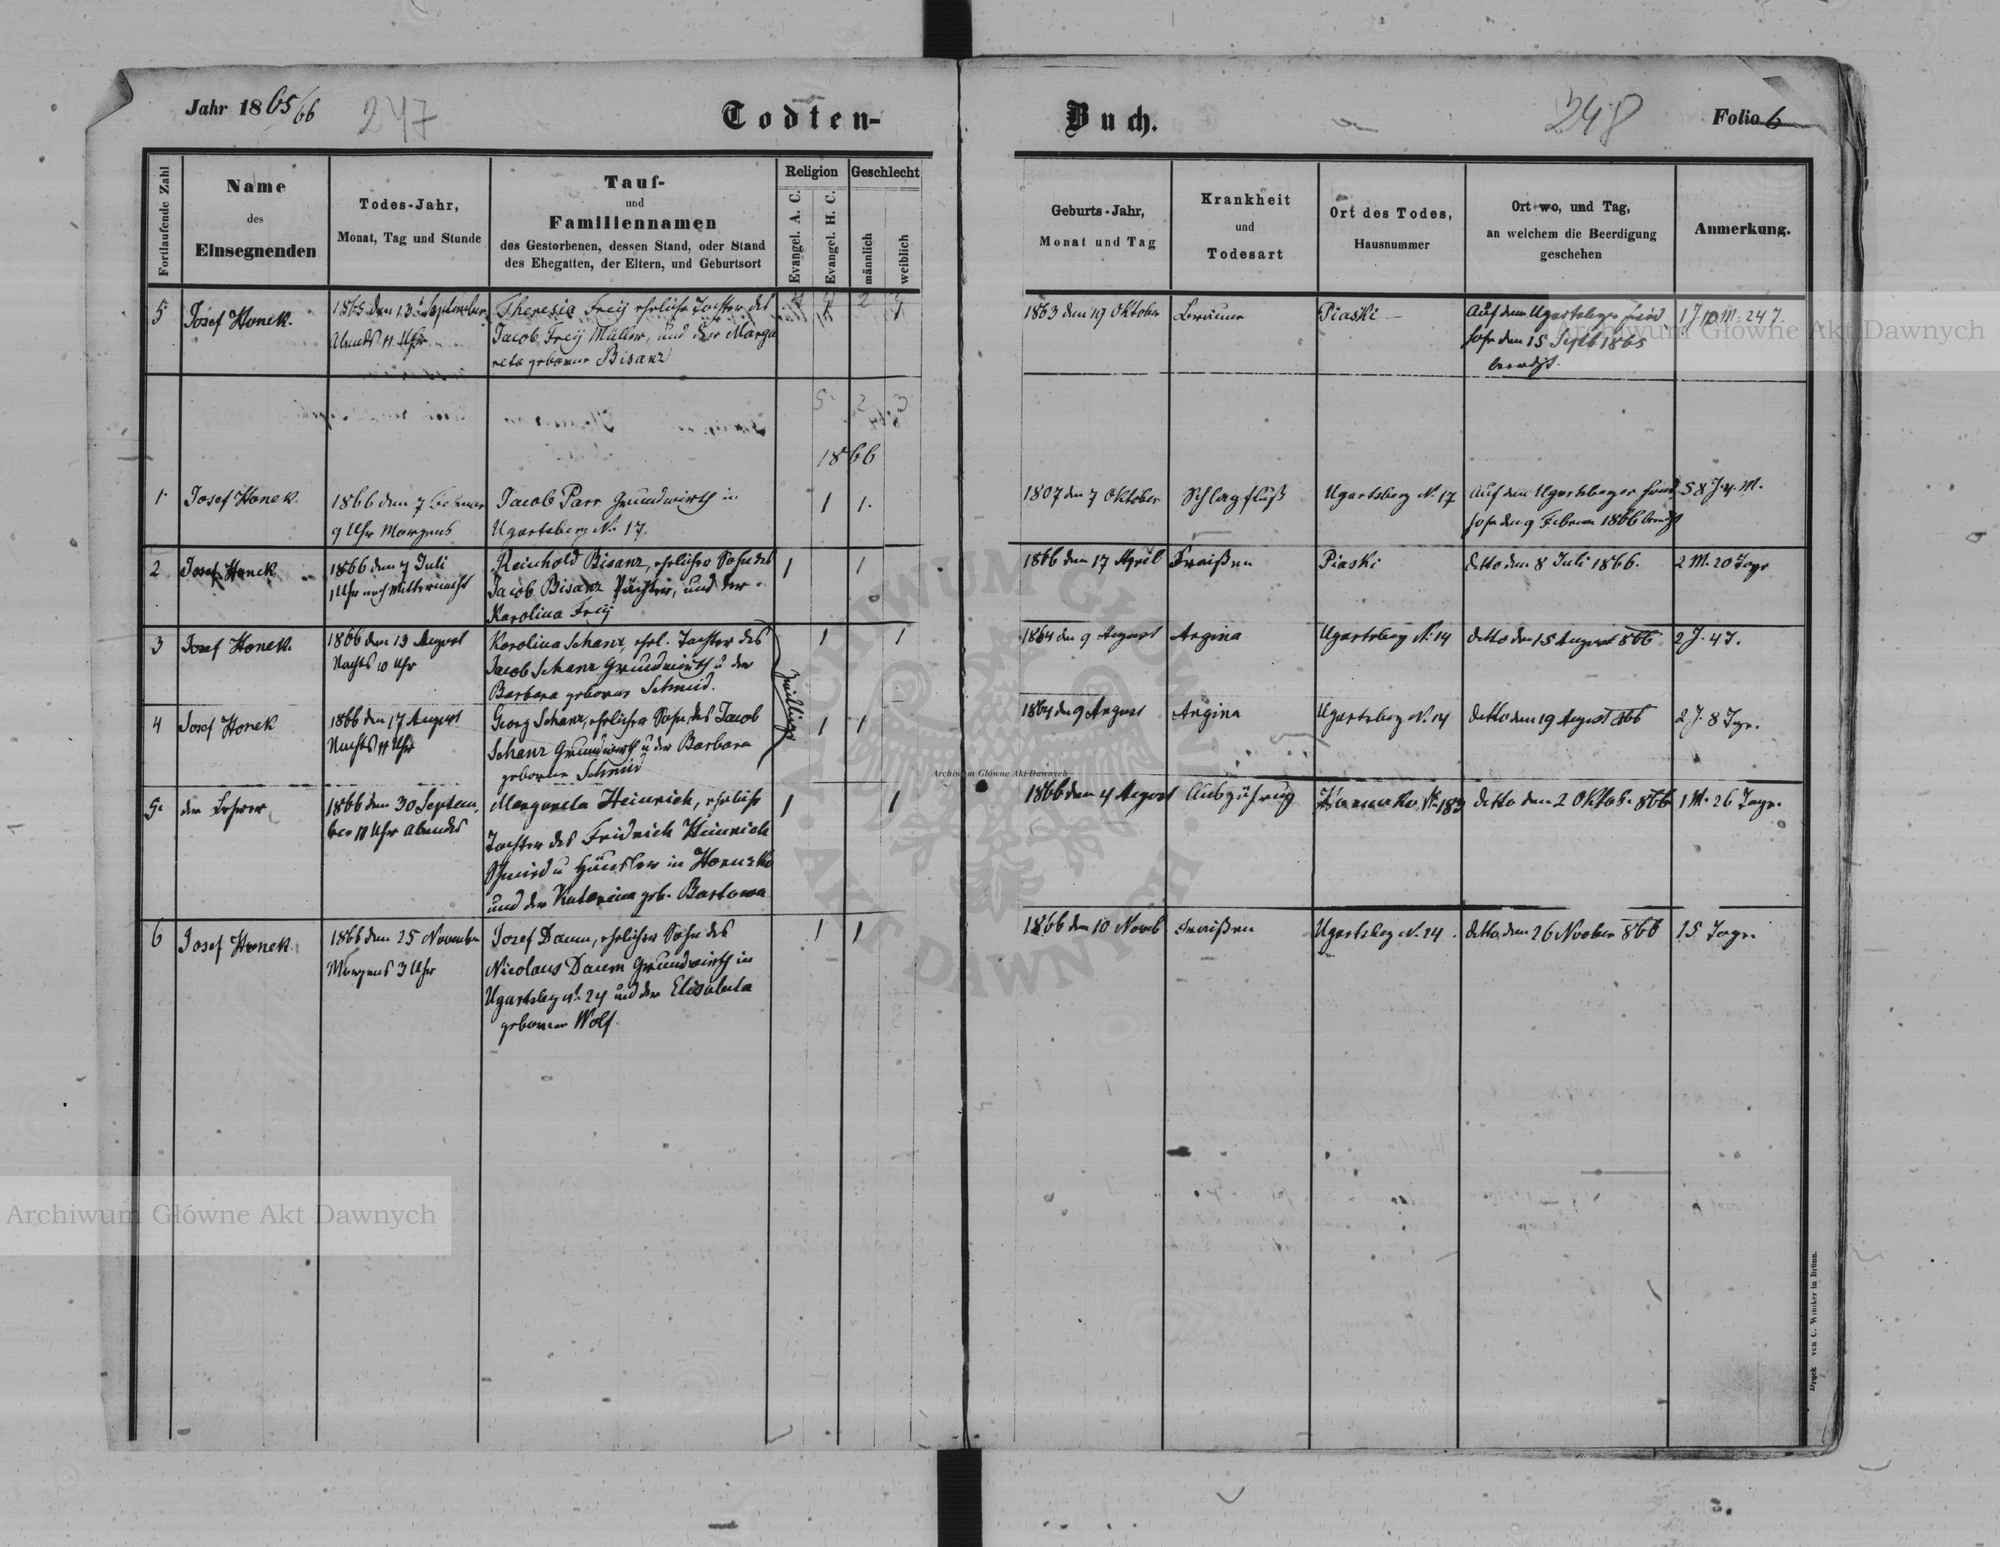 Jahr 1865/66
247
Todten-
Buch.
248
Folio 6
Fortlaufende Zahl
Name
des
Einsegnenden
Todes-Jahr,
Monat, Tag und Stunde
Tauf-
und
Familiennamen
des Gestorbenen, dessen Stand, oder Stand
des Ehegatten, der Eltern, und Geburtsort
Religion
Evangel. A. C.
Evangel. H. C.
Geschlecht
männlich
weiblich
Geburts-Jahr,
Monat und Tag
Krankheit
und
Todesart
Ort des Todes,
Hausnummer
Ort wo, und Tag,
an welchem die Beerdigung
geschehen
Anmerkung.
5
Josef Honek.
1865 den 13 September
Abends 11 Uhr
Theresia Freÿ ehrliche Tochter des
Jacob Freÿ Müller, und der Marga
reta geborene Bisanz
1863 den 19 Oktober
Bräune
Piaski
Auf dem Ugartsberger Fried
hofe den 15 Septb 1865
beerdigt.
1 J. 10 M. 24 T.
5
2
3
1866
1
Josef Honek.
1866 den 7 Februar
9 Uhr Morgens
Jacob Parr Grundwirth in
Ugartsberg No 17.
1
1.
1807 den 7 Oktober
Schlagfluß
Ugartsberg No 17
Auf dem Ugartsberger Fried
hofe den 9 Februar 1866 beerdigt
58 J. 4 M.
2
Josef Honek
1866 den 7 Juli
1 Uhr nach Mitternacht
Reinhold Bisanz, ehrlicher Sohn des
Jacob Bisanz Pächter, und der
Karolina Freÿ
1
1
1866 den 17 April
Fraißen
Piaski
detto den 8 Juli 1866.
2 M. 20 Tage
3
Josef Honek.
1866 den 13 August
Nachts 10 Uhr
Karolina Schanz, ehrl. Tochter des
Jacob Schanz Grundwirth u der
Barbara geborene Schmid.
Zwillinge
1
1
1864 den 9 August
Angina
Ugartsberg No 14
detto den 15 August 866
2 J. 4 T.
4
Josef Honek
1866 den 17 August
Nachts 11 Uhr
Georg Schanz, ehrlicher Sohn des Jacob
Schanz Grundwirth u der Barbara
geborene Schmid
1
1
1864 den 9 August
Angina
Ugartsberg No 14
detto den 19 August 866
2 J. 8 Tage.
5.
der Lehrer
1866 den 30 Septem
ber 11 Uhr Abends
Margareta Heinrich, ehrliche
Tochter des Fridrich Heinrich
Schmied u Häusler in Horucko
und der Katarina geb. Bartowa
1
1
1866 den 4 August
Auszährung
Horucko No 183
detto den 2 Oktob. 866
1 M. 26 Tage.
6
Josef Honek
1866 den 25 November
Morgens 3 Uhr
Josef Daum, ehrlicher Sohn des
Nicolaus Daum Grundwirth in
Ugartsberg No 24 und der Elisabeta
geborene Wolf.
1
1
1866 den 10 Novb
Fraißen
Ugartsberg No 24
detto den 26 November 866
15 Tage.
Druck von C. Winiker in Brünn.
Archiwum Główne Akt Dawnych
Archiwum Główne Akt Dawnych
Archiwum Główne Akt Dawnych
ARCHIWUM GŁÓWNE
AKT DAWNYCH